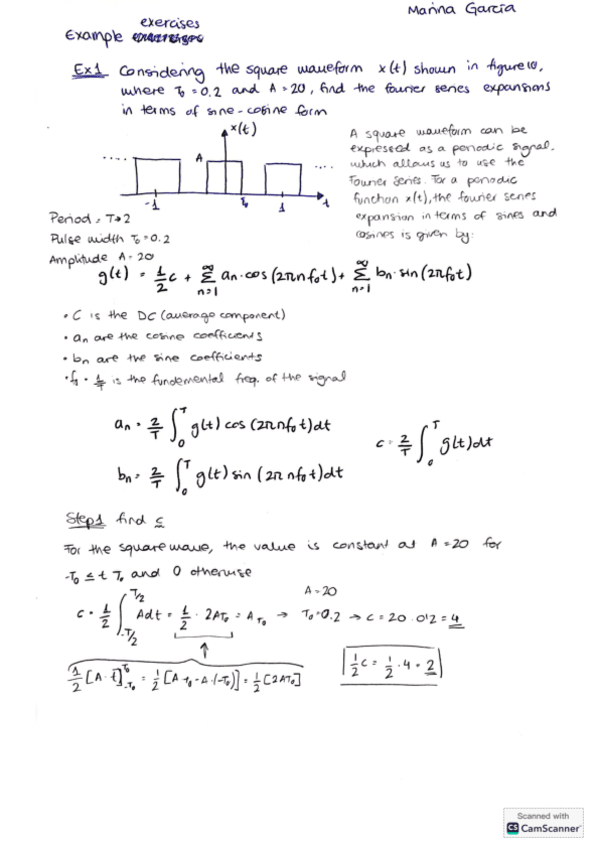 Marina García
exercises
Example
Ex1 Considering the square waveform x(t) shown in figure 10,
where T₀ = 0.2 and A = 20, find the fourier series expansions
in terms of sine-cosine form
x(t)
A
-1
T₀
1
t
A square waveform can be
expressed as a periodic signal.
which allows us to use the
Fourier Series. For a periodic
function x(t), the fourier series
expansion in terms of sines and
cosines is given by:
Period, T→2
Pulse width T₀ = 0.2
Amplitude A = 20
g(t) = 1/2 c + ∞Σn=1 an·cos(2πnf₀t) + ∞Σn=1 bn·sin(2πf₀t)
• C is the DC (average component)
• an are the cosine coefficients
• bn are the sine coefficients
• f₀ = 1/T is the fundemental freq. of the signal
an = 2/T ∫₀ᵀ g(t) cos(2πnf₀t)dt
c = 2/T ∫₀ᵀ g(t)dt
bn = 2/T ∫₀ᵀ g(t) sin(2πnf₀t)dt
Step1 find c
For the square wave, the value is constant at A = 20 for
-T₀ ≤ t T₀ and 0 otherwise
A = 20
c = 1/2 ∫ T/2 -T/2 Adt = 1/2 · 2AT₀ = AT₀ → T₀ = 0.2 → c = 20 · 0'2 = 4
1/2 [A·t] T₀ -T₀ = 1/2 [A·t₀ - A·(-T₀)] = 1/2 [2AT₀]
1/2 c = 1/2 · 4 = 2
Scanned with
CS CamScanner